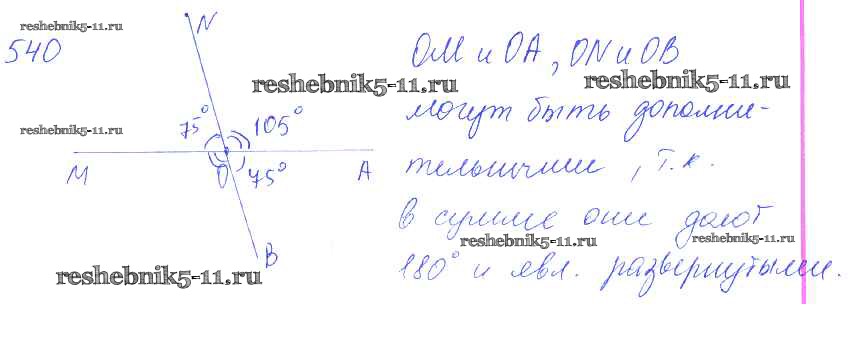 reshebnik5-11.ru
540
N
ОМ и ОА, ON и OB
reshebnik5-11.ru
reshebnik5-11.ru
могут быть дополни-
reshebnik5-11.ru
75° 105°
M O 75° A
тельными, т.к.
в сумме они дают
reshebnik5-11.ru
reshebnik5-11.ru
B
reshebnik5-11.ru
180° и явл. развернутыми.